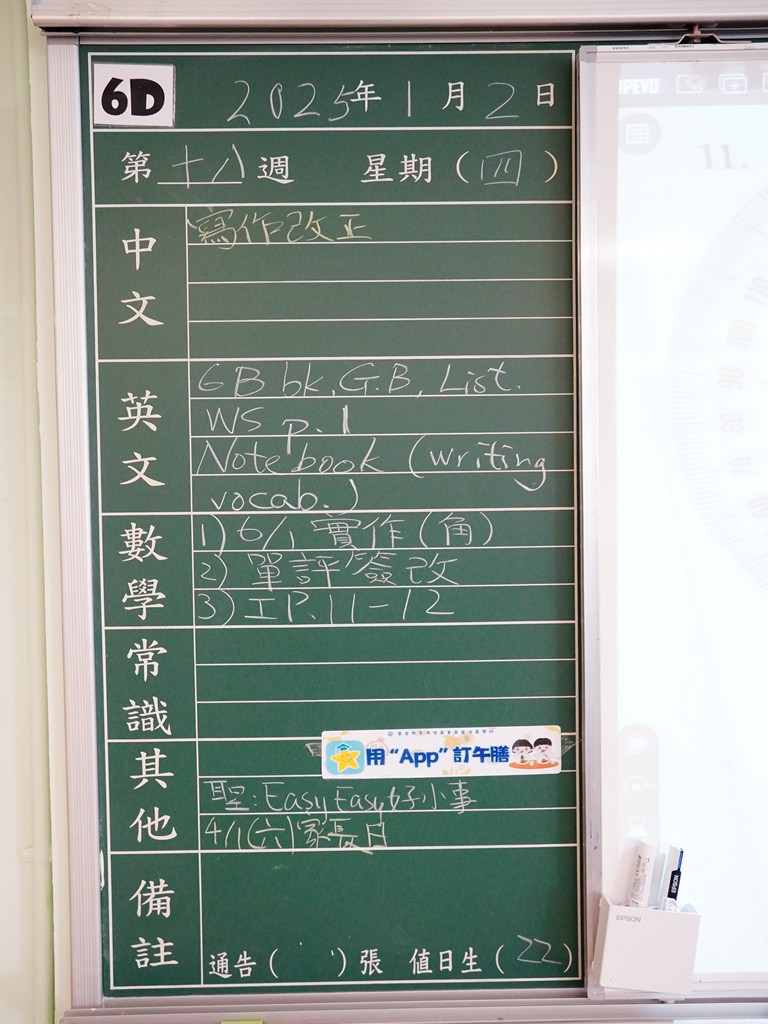 6D 2025年1月2日
第十八週 星期（四）
中文
寫作改正
英文
6B bk, G.B, List.
WS p.1
Notebook (writing
vocab.)
數學
1) 6/1 實作(角)
2) 單評簽改
3) 工P.11-12
常識
其他
用“App”訂午膳
聖:Easy Easy好小事
4/1(六)家長日
備註
通告（ ）張 值日生（22）
IPEVO
11.
EPSON
EPSON